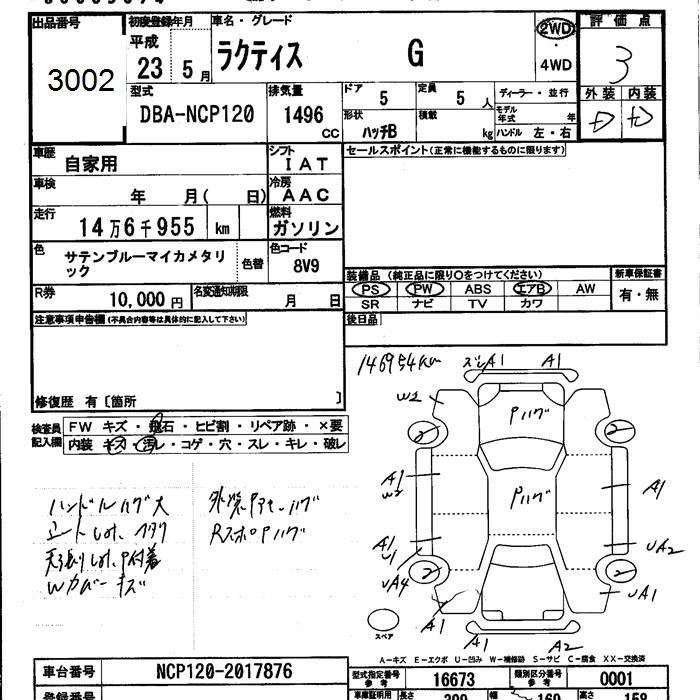 出品番号
3002
初度登録年月
平成
23 5月
車名・グレード
ラクティス G
2WD
4WD
評価点
3
外装 内装
D D
型式
DBA-NCP120
排気量
1496 CC
ドア
5
定員
5 人
形状
ハッチB
積載
kg
ディーラー・並行
モデル年式 年
ハンドル 左・右
車歴
自家用
シフト
IAT
車検
年 月( 日)
冷房
AAC
走行
14万6千955 km
燃料
ガソリン
色
サテンブルーマイカメタリック
色替
色コード
8V9
R券
10,000円
名変通知期限
月 日
セールスポイント(正常に機能するものに限ります)
装備品 (純正品に限り○をつけてください)
PS PW ABS エアB AW
SR ナビ TV カワ
新車保証書
有・無
注意事項申告欄(不具合内容等は具体的に記入して下さい)
後日品
修復歴 有〔箇所 〕
検査員記入欄
FW キズ・飛石・ヒビ割・リペア跡・×要
内装 キズ・汚レ・コゲ・穴・スレ・キレ・破レ
146954km
ズレA1 A1
W2
Pハゲ
2 2
A1
W2
Pハゲ
A1
A1
U1
UA2
UA4
2 2
A1
UA1
A1 A2
ハンドルハゲ大
シートしみ、ヘタリ
天張りしみ、P付着
Wカバーキズ
RスポPハゲ
スペア
A-キズ E-エクボ U-凹み W-補修跡 S-サビ C-腐食 XX-交換済
車台番号
NCP120-2017876
型式指定番号
参考
16673
類別区分番号
参考
0001
登録番号
車庫証明用
参考
長さ
幅
高さ